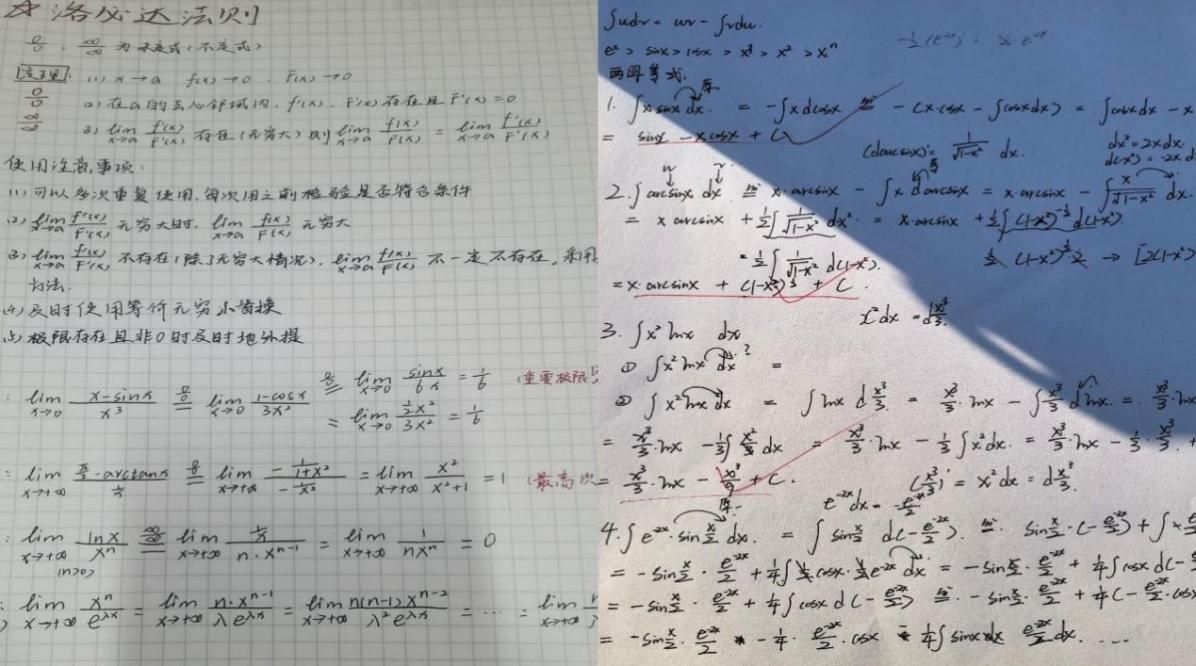 洛必达法则
0/0 , ∞/∞ 为未定式(不定式)
定理: (1) x→a f(x)→0 , F(x)→0
0/0
∞/∞
2) 在a的去心邻域内, f'(x), F'(x)存在且F'(x)=0
3) lim x→a f'(x)/F'(x) 存在(无穷大)则 lim x→a f(x)/F(x) = lim x→a f'(x)/F'(x)
使用注意事项:
(1) 可以多次重复使用,每次用之前检验是否符合条件
(2) lim x→a f'(x)/F'(x) 无穷大时, lim x→a f(x)/F(x) 无穷大
(3) lim x→a f'(x)/F'(x) 不存在(除了无穷大情况), lim x→a f(x)/F(x) 不一定不存在,采用
方法.
(4) 及时使用等价无穷小替换
(5) 极限存在且非0时及时地外提
lim x→0 (x-sinx)/x³ 0/0= lim x→0 (1-cosx)/3x² 0/0= lim x→0 sinx/6x = 1/6 (重要极限
= lim x→0 (½x²)/3x² = 1/6
lim x→+∞ (π/2-arctanx)/(1/x) 0/0= lim x→+∞ (-1/(1+x²))/(-1/x²) = lim x→+∞ x²/(x²+1) = 1 (最高次
lim x→+∞ lnx/xⁿ ∞/∞= lim x→+∞ (1/x)/(n·xⁿ⁻¹) = lim x→+∞ 1/(nxⁿ) = 0
(n>0)
lim x→+∞ xⁿ/e^λx = lim x→+∞ n·xⁿ⁻¹/λe^λx = lim x→+∞ n(n-1)xⁿ⁻²/λ²e^λx = ... = lim x→+∞
∫udv = uv - ∫vdu.
eˣ > sinx > cosx > x³ > x² > xⁿ
两同等式.
1. ∫x sinx dx. = -∫x dcosx = -(x·cosx - ∫cosxdx) = ∫cosx dx - x
= sinx - xcosx + C
(darcsinx)= 1/√(1-x²) dx.
dx²=2xdx.
d(-x²)=-2xd
2. ∫arcsinx dx = x·arcsinx - ∫x darcsinx = x·arcsinx - ∫x/√(1-x²) dx.
= x arcsinx + ½∫1/√(1-x²) dx² = x·arcsinx + ½∫(1-x²)^(-½) d(1-x²).
= ½∫1/√(1-x²) d(1-x²).
= x·arcsinx + (1-x²)^½ + C.
x²dx = dx³/3.
3. ∫x² lnx dx
① ∫x² lnx dx ? =
② ∫x² lnx dx = ∫lnx d x³/3 = x³/3·lnx - ∫x³/3 dlnx. = x³/3·lnx
= x³/3·lnx - ⅓∫x³/x dx = x³/3·lnx - ⅓∫x²dx. = x³/3·lnx - ⅓·x³/3 +
= x³/3·lnx - x³/9 + C.
(x³/3)' = x²dx = dx³/3.
e^(-2x)dx = -e^(-2x)/2
4. ∫e^(-2x)·sin x/2 dx. = ∫sin x/2 d(-e^(-2x)/2). = sin x/2·(-e^(-2x)/2) +
= -sin x/2·e^(-2x)/2 + ¼∫cosx·e^(-2x) dx = -sin x/2·e^(-2x)/2 + ¼∫cosx d(-
= -sin x/2·e^(-2x)/2 + ¼∫cosx d(-e^(-2x)/2) = -sin x/2·e^(-2x)/2 + ¼(-e^(-2x)/2·cosx
= -sin x/2·e^(-2x)/2 - ¼·e^(-2x)/2·cosx - ¼∫sinx e^(-2x)/2 dx. ....